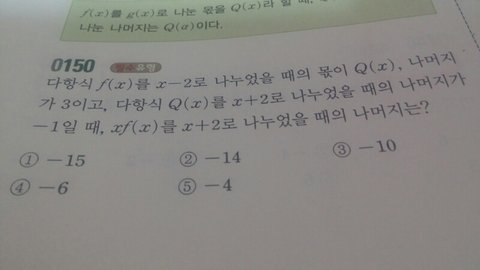 f(x)를 g(x)로 나눈 몫을 Q(x)라 할 때,
나눈 나머지는 Q(a)이다.
0150 필수유형
다항식 f(x)를 x-2로 나누었을 때의 몫이 Q(x), 나머지
가 3이고, 다항식 Q(x)를 x+2로 나누었을 때의 나머지가
-1일 때, xf(x)를 x+2로 나누었을 때의 나머지는?
① -15 ② -14 ③ -10
④ -6 ⑤ -4